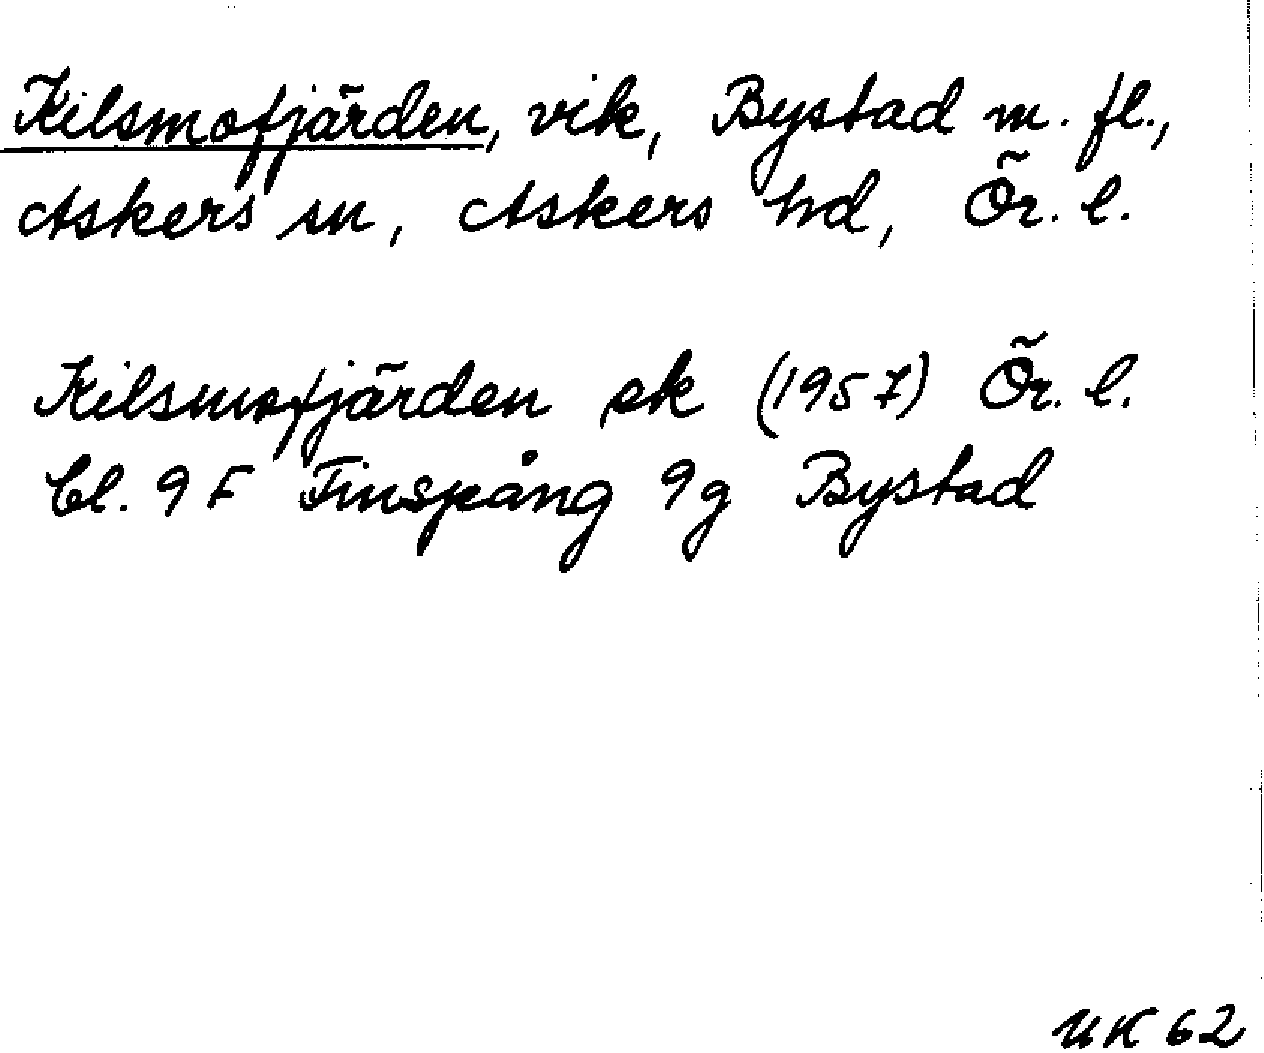 Kilsmofjärden, vik, Bystad m. fl.,
Askers sn, Askers hd, Ör. l.
Kilsmofjärden ek (1957) Ör. l.
bl. 9 F Finspång 9g Bystad
UK 62